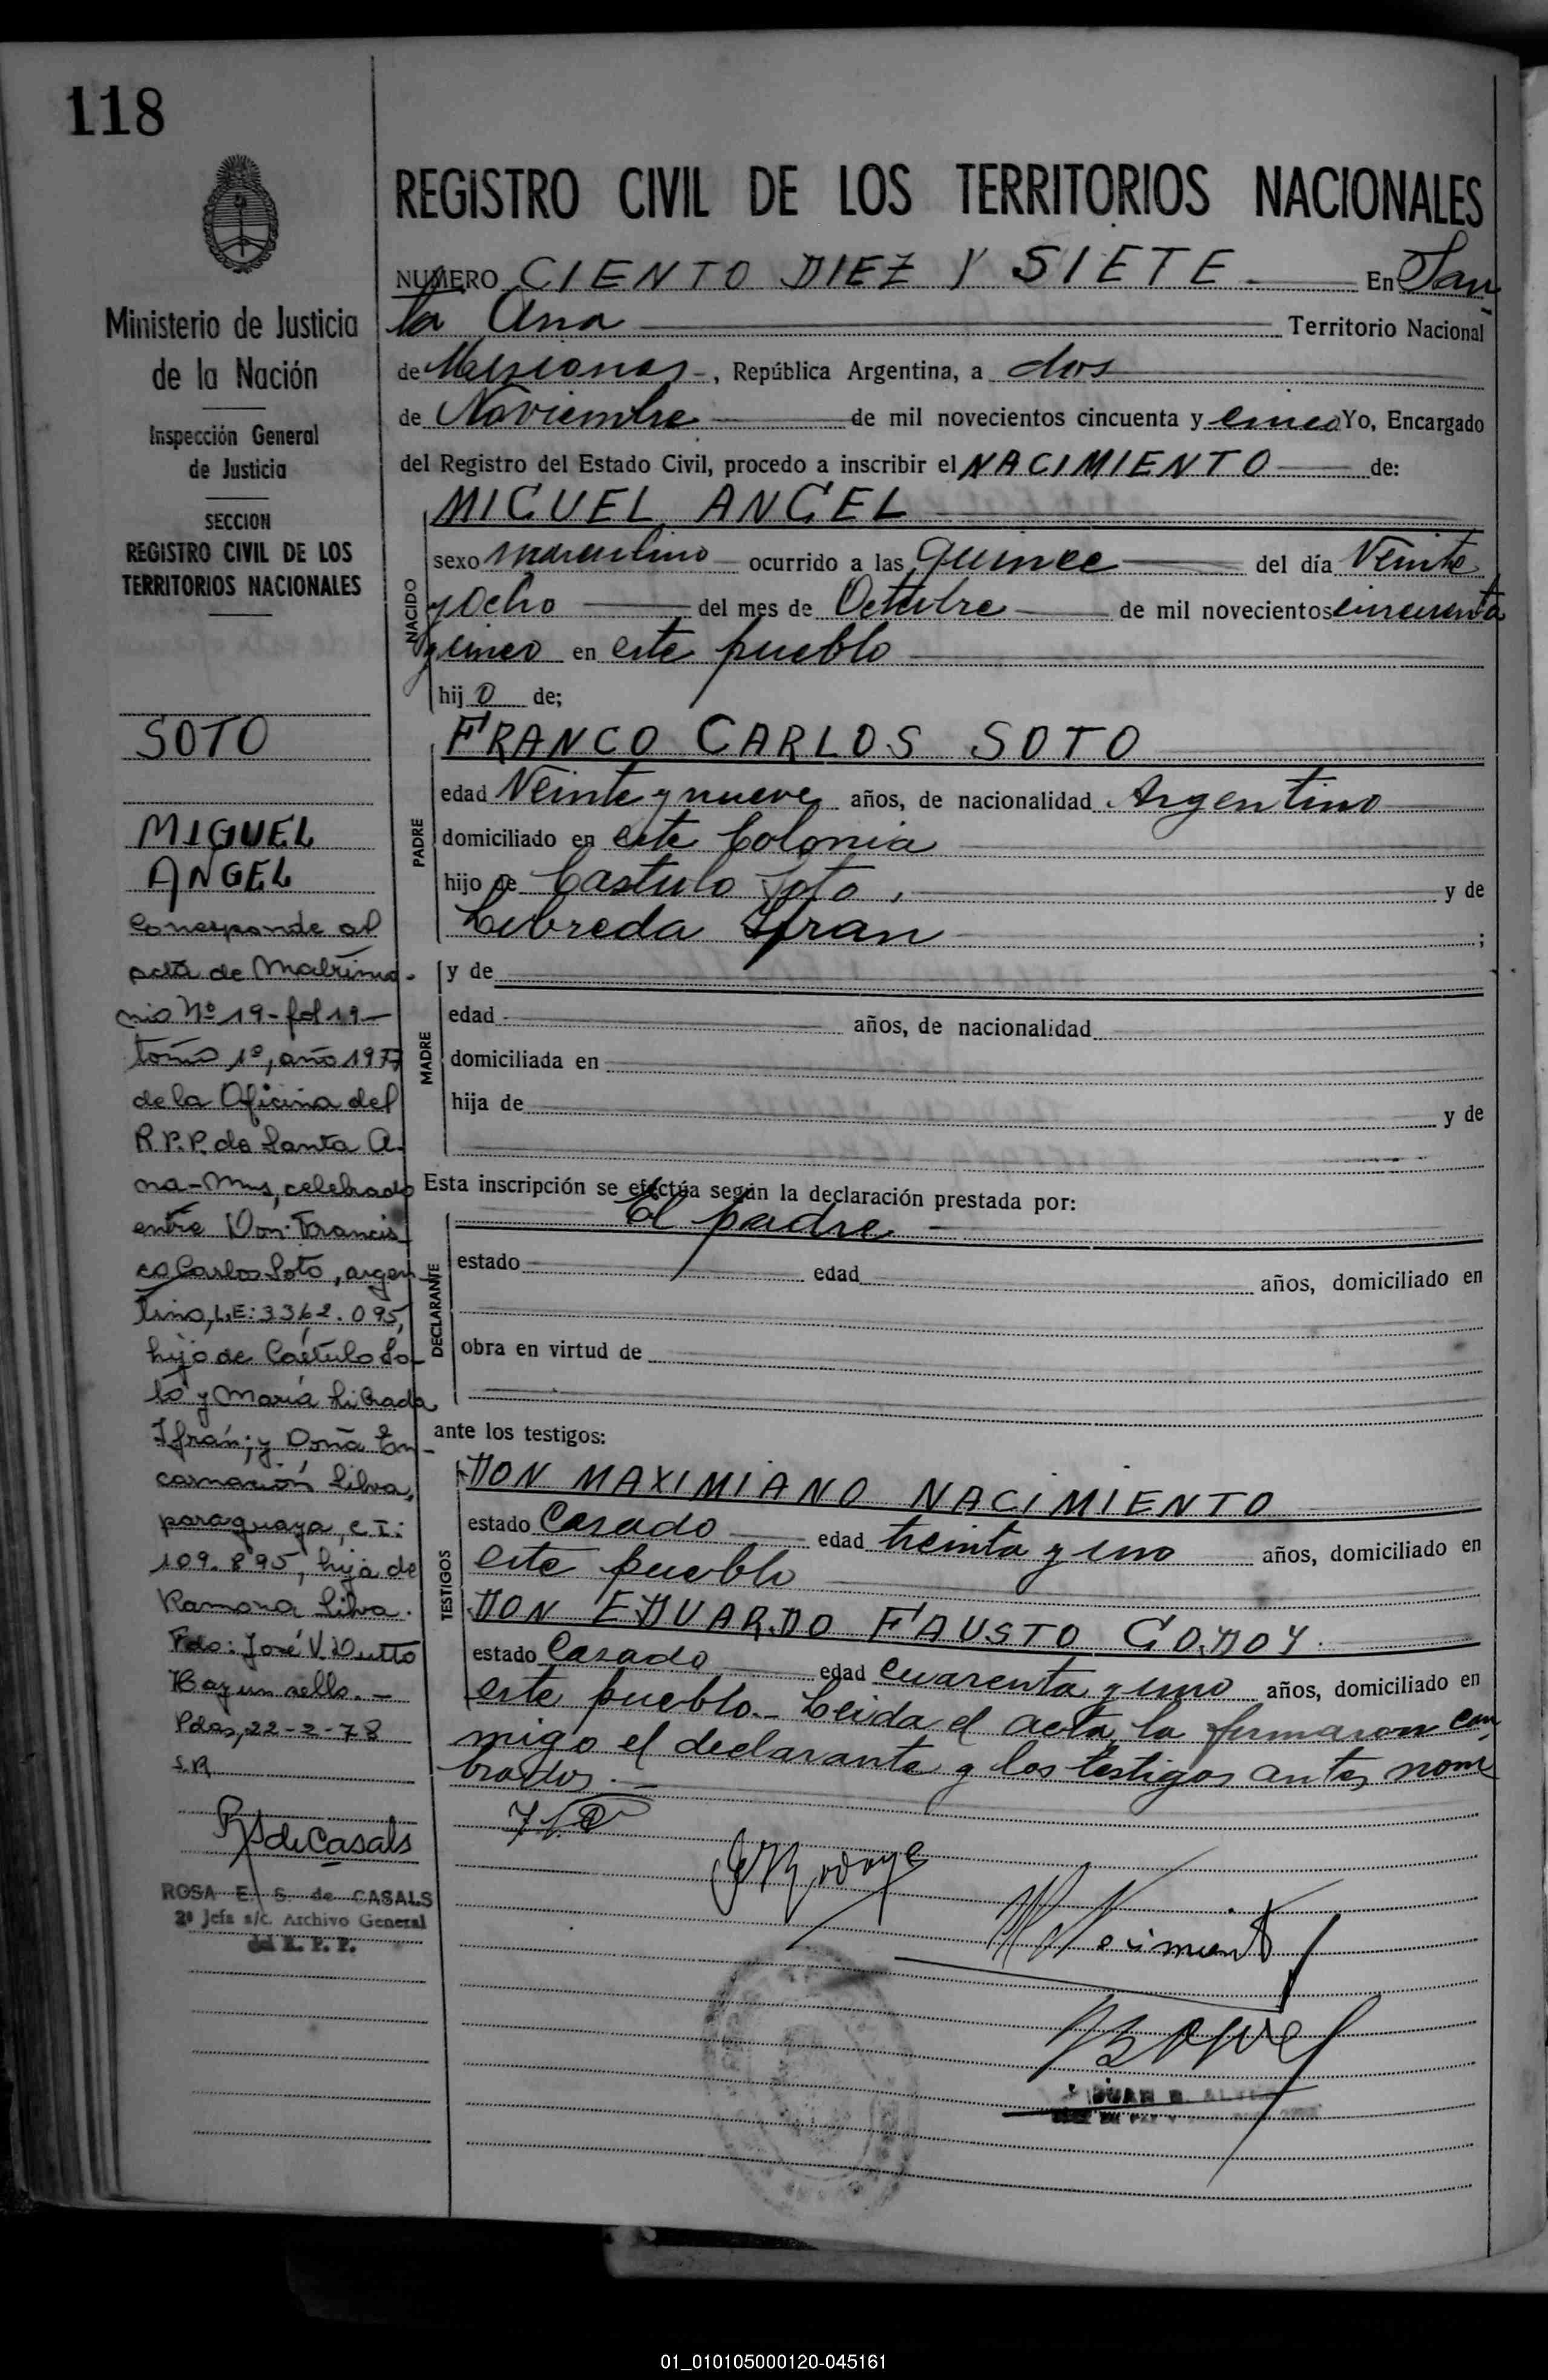 118
Ministerio de Justicia
de la Nación
Inspección General
de Justicia
SECCION
REGISTRO CIVIL DE LOS
TERRITORIOS NACIONALES
SOTO
MIGUEL
ANGEL
Corresponde al
acta de Matrimo-
nio Nº 19 - fol 19 -
tomo 1º, año 1977
de la Oficina del
R.P.P. de Santa A-
na - Mnes, celebrado
entre Don: Francis-
co Carlos Soto, argen-
tino, L.E: 3362.095,
hijo de Cástulo So-
to y María Librada
Ifrán; y Doña En-
carnación Silva,
paraguaya, C.I:
109.895, hija de
Ramona Silva.
Fdo: José V. Dutto
Hay un sello. -
Pdas, 22-2-78
S.R.
RSdeCasals
ROSA E. S. de CASALS
2ª Jefa a/c. Archivo General
del R. P. P.
REGISTRO CIVIL DE LOS TERRITORIOS NACIONALES
NUMERO CIENTO DIEZ Y SIETE En San
ta Ana Territorio Nacional
de Misiones -, República Argentina, a dos
de Noviembre de mil novecientos cincuenta y cinco Yo, Encargado
del Registro del Estado Civil, procedo a inscribir el NACIMIENTO de:
MIGUEL ANGEL
NACIDO
sexo masculino ocurrido a las quince del día Veinte
y Ocho del mes de Octubre de mil novecientos cincuenta
y cinco en este pueblo
hij o de;
PADRE
FRANCO CARLOS SOTO
edad Veinte y nueve años, de nacionalidad Argentino
domiciliado en este Colonia
hijo de Castulo Soto, y de
Libreda Ifran ;
MADRE
y de
edad años, de nacionalidad
domiciliada en
hija de y de
Esta inscripción se efectúa según la declaración prestada por:
DECLARANTE
El padre
estado edad años, domiciliado en
obra en virtud de
ante los testigos:
TESTIGOS
DON MAXIMIANO NACIMIENTO
estado Casado edad treinta y uno años, domiciliado en
este pueblo
DON EDUARDO FAUSTO GODOY.
estado Casado edad cuarenta y uno años, domiciliado en
este pueblo.- Leida el acta, la firmaron con
migo el declarante y los testigos antes nom
brados. -
JUAN B.
01_010105000120-045161